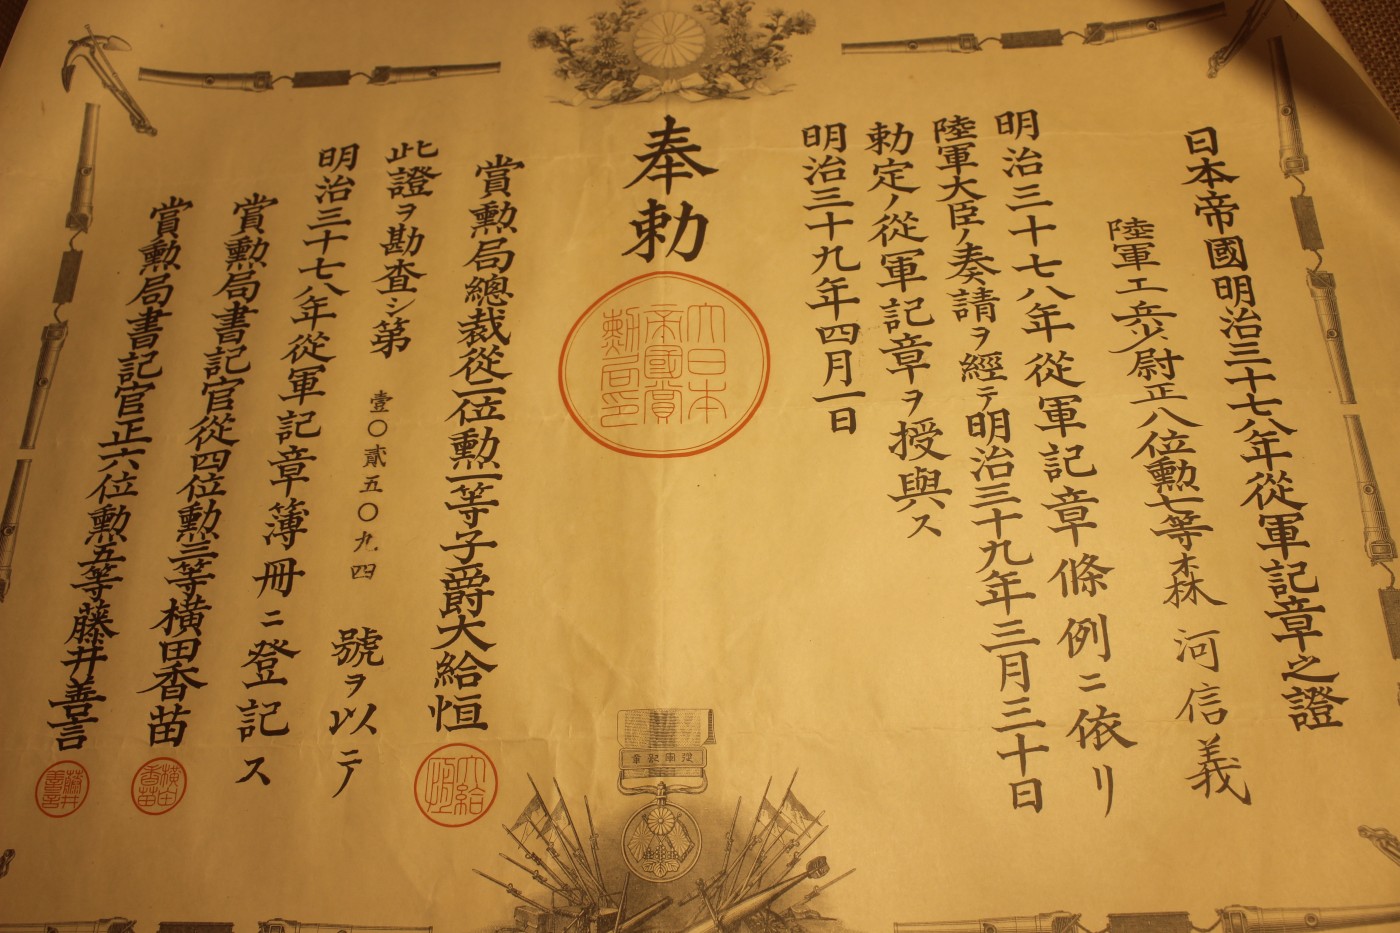 日本帝國明治三十七八年從軍記章之證
陸軍工兵少尉正八位勲七等森河信義
明治三十七八年從軍記章條例ニ依リ
陸軍大臣ノ奏請ヲ經テ明治三十九年三月三十日
勅定ノ從軍記章ヲ授與ス
明治三十九年四月一日
奉勅
大日本
帝國賞
勲局印
賞勲局總裁從二位勲一等子爵大給恒
大給
恒
此證ヲ勘査シ第壹〇貳五〇九四號ヲ以テ
明治三十七八年從軍記章簿冊ニ登記ス
賞勲局書記官從四位勲三等横田香苗
横田
香苗
賞勲局書記官正六位勲五等藤井善言
藤井
善言
從軍記章